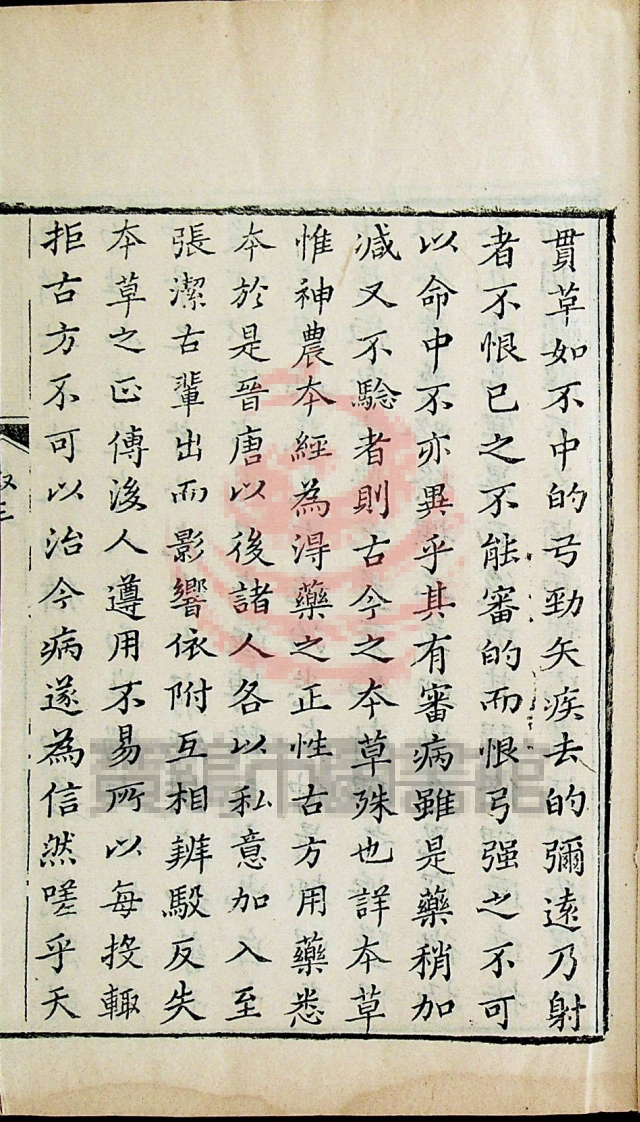 貫革如不中的弓勁矢疾去的彌遠乃射
者不恨已之不能審的而恨弓强之不可
以命中不亦異乎其有審病雖是藥稍加
減又不驗者則古今之本草殊也詳本草
惟神農本經為得藥之正性古方用藥悉
本於是晉唐以後諸人各以私意加入至
張潔古輩出而影響依附互相辨駁反失
本草之正傳後人遵用不易所以每投輒
拒古方不可以治今病遂為信然嗟乎天
叙三
寶鷄市圖書館